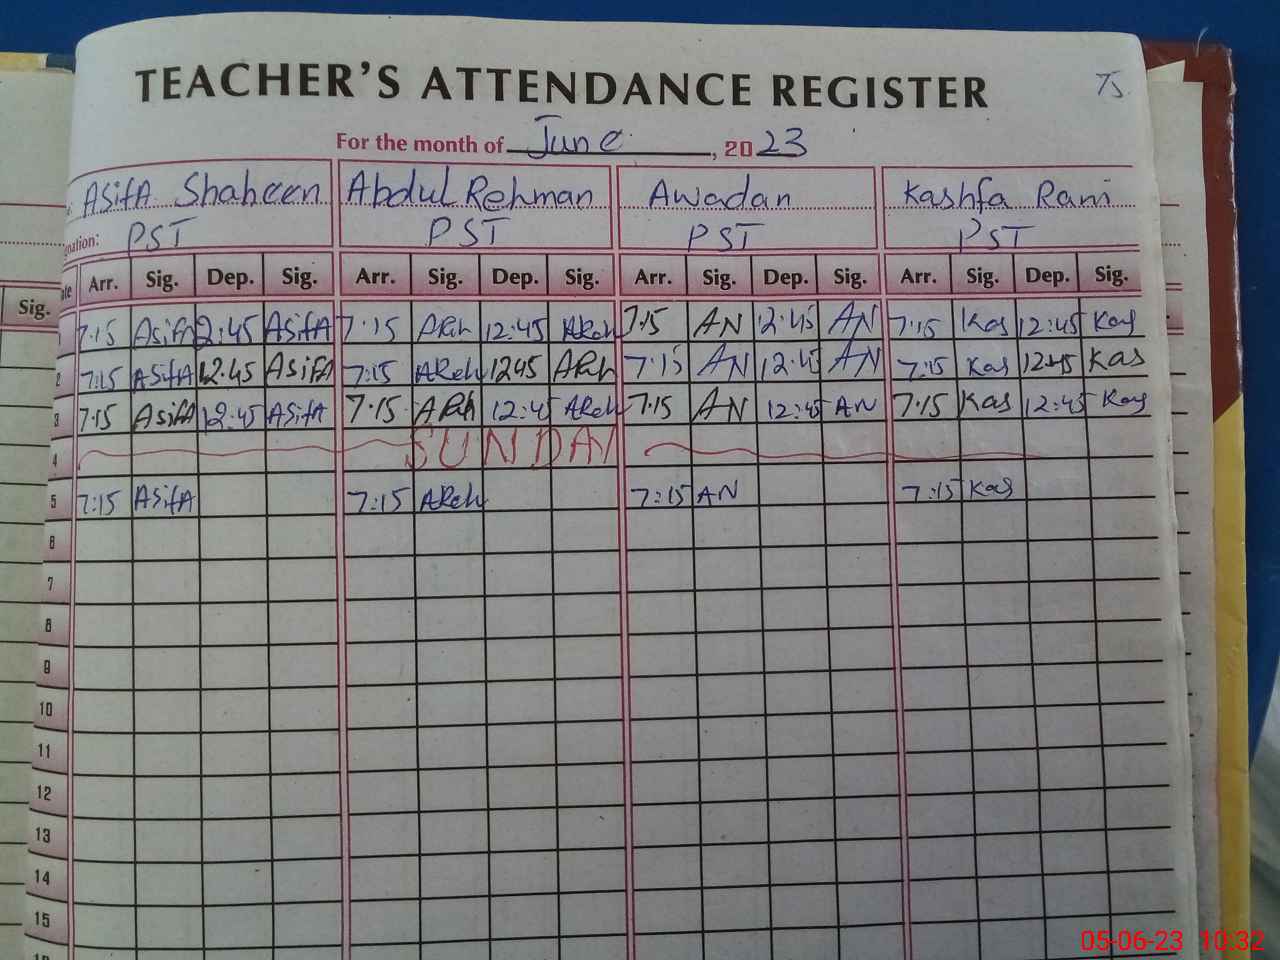 TEACHER'S ATTENDANCE REGISTER 75
For the month of June, 2023
AsifA Shaheen Abdul Rehman Awadan Kashfa Rani
nation: PST PST PST PST
Sig. ate Arr. Sig. Dep. Sig. Arr. Sig. Dep. Sig. Arr. Sig. Dep. Sig. Arr. Sig. Dep. Sig.
1 7:15 AsifA 12:45 AsifA 7:15 AReh 12:45 AReh 7:15 AN 12:45 AN 7:15 Kas 12:45 Kas
2 7:15 AsifA 12:45 AsifA 7:15 AReh 1245 AReh 7:15 AN 12:45 AN 7:15 Kas 12:45 Kas
3 7:15 AsifA 12:45 AsifA 7:15 AReh 12:45 AReh 7:15 AN 12:45 AN 7:15 Kas 12:45 Kas
4 SUNDAY
5 7:15 AsifA 7:15 AReh 7:15 AN 7:15 Kas
6
7
8
9
10
11
12
13
14
15
05-06-23 10:32